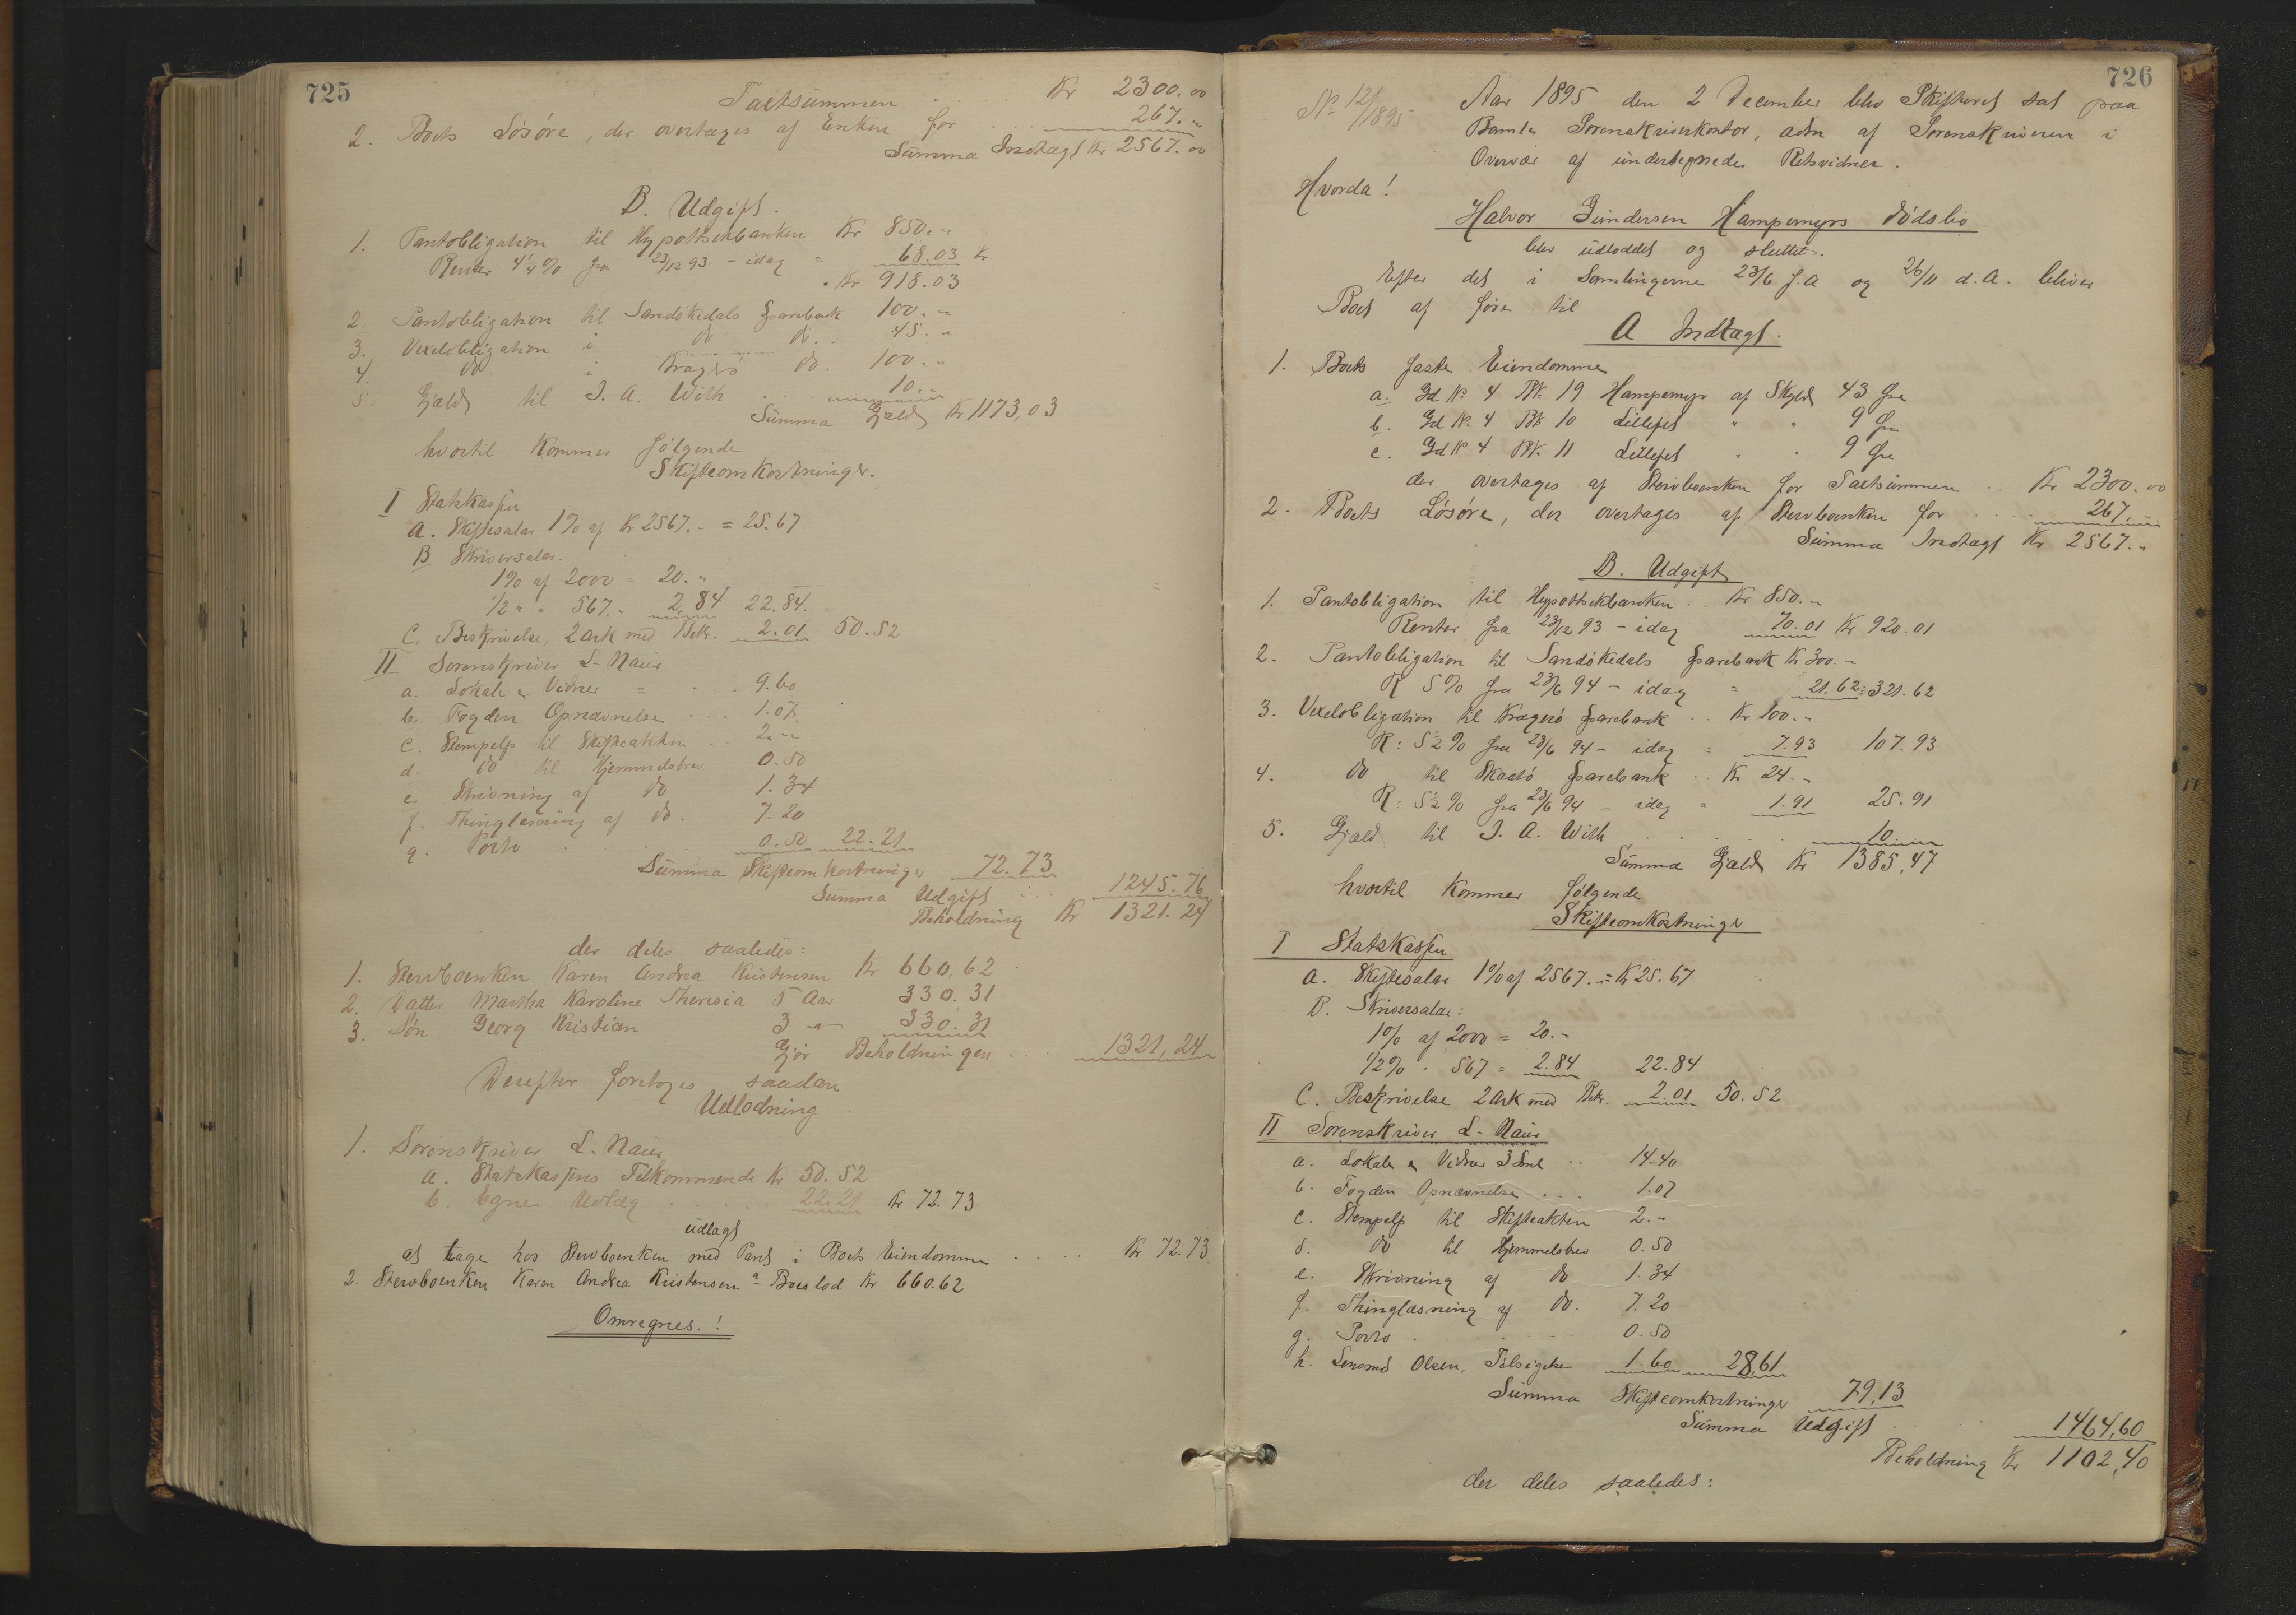 725
Taxtsummen . . Kr 2300.00
2. Boets Løsøre, der overtages af Enken for . . 267."
Summa Indtægt Kr 2567.00
B. Udgift.
1. Pantobligation til Hypothekbanken Kr 850."
Renter 4 1/4 % fra 23/12 93 - idag = 68.03 Kr
. Kr 918.03
2. Pantobligation til Sandøkedals Sparebank 100."
3. Vexelobligation i do do. 45."
4. do i Kragerø do. 100."
5. Gjæld til J. A. With . . . 10."
Summa Gjæld Kr 1173,03
hvortil kommer følgende
Skifteomkostninger.
I Statskassen
A. Skiftesalar 1% af Kr 2567.- = 25.67
B Skriversalar.
1% af 2000 = 20."
1/2 " " 567." 2,84 22.84.
C. Beskrivelse, 2 Ark med Bekr. 2.01 50.52
II Sorenskriver L. Naur
a. Lokale & Vidner = . . 9.60
b. Fogden Opnævnelse . . . 1.07
c. Stempelp til Skifteakten . . 2."
d. do til Hjemmelsbrev 0.50
e. Skrivning af do 1.34
f. Thinglæsning af do. 7.20
g. Porto . . . 0.50 22.21
Summa Skifteomkostninger 72.73
Summa Udgift . . 1245.76
Beholdning Kr 1321.24
der deles saaledes:
1. Stervboenken Karen Andrea Kristensen Kr 660,62
2. Datter Martha Karoline Theresia 5 Aar 330.31
3. Søn Georg Kristian 3 -"- 330.31
Gjør Beholdningen . . . 1321,24
Derefter foretoges saadan
Udlodning
1. Sorenskriver L. Naur
a. Statskassens Tilkommende Kr 50.52
b. Egne Udlæg . . . . 22.21 Kr 72.73
udlagt
at tage hos Stervboenken med Pant i Boets Eiendomme . . . . Kr 72.73
2. Stervboenken Karen Andrea Kristensen Boeslod Kr 660.62
Omregnes.!
726
No 12/1895
Aar 1895 den 2 December blev Skifteret sat paa
Bamle Sorenskriverkontor, adm af Sorenskriveren i
Overvær af undertegnede Retsvidner.
Hvorda!
Halvor Gundersen Hampemyrs Dødsbo
blev udloddet og sluttet.
Efter det i Samlingerne 23/6 f.A og 26/11 d.A. bliver
Boet at føre til
A Indtægt.
1. Boets faste Eiendomme
a. Gd No 4 Bk. 19 Hampemyr af Skyld 43 Øre
b. Gd No. 4 Bk 10 Lillejet " " 9 Øre
c. Gd No 4 Bk. 11 Lillejet " " 9 Øre
der overtages af Stervboenken for Taxtsummen . . Kr 2300.00
2. Boets Løsøre, der overtages af Stervboenken for . . . . 267.-
Summa Indtægt Kr 2567."
B. Udgift
1. Pantobligation til Hypothekbanken . . Kr 850.-
Renter fra 23/12 93 - idag 70.01 Kr 920.01
2. Pantobligation til Sandøkedals Sparebank Kr 300.-
R 5% fra 23/6 94 - idag = 21.62 = 321.62
3. Vexelobligation til Kragerø Sparebank . . Kr 100."
R: 5 1/2 % fra 23/6 94 - idag = 7.93 107.93
4. do til Skaatø Sparebank . . Kr 24."
R: 5 1/2 % fra 23/6 94 - idag = 1.91 25.91
5. Gjæld til J. A. With . . . . 10."
Summa Gjæld Kr 1385,47
hvortil kommer følgende
Skifteomkostninger
I Statskassen
A. Skiftesalar 1% af 2567.- = Kr 25.67
B. Skriversalar:
1% af 2000 = 20.-
1/2% . 567 = 2.84 22.84
C. Beskrivelse 2 Ark med Bekr. 2.01 50.52
II Sorenskriver L. Naur
a. Lokale & Vidner 3 Saml . . 14.40
b. Fogden Opnævnelse . . . 1.07
c. Stempelp til Skifteakten 2."
d. do til Hjemmelsbrev 0.50
e. Skrivning af do 1.34
f. Thinglæsning af do. 7.20
g. Porto . . . . . 0.50
h. Lensmd Olsen, Tilsigelse 1.60 28,61
Summa Skifteomkostninger 79,13
Summa Udgift . . . 1464,60
Beholdning Kr 1102,40
der deles saaledes: